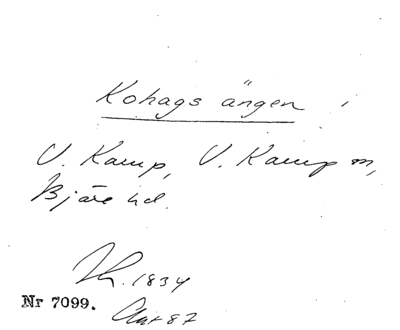 Kohags ängen
V. Karup, V. Karup sn,
Bjäre hd.
1834
Nr 7099.
87